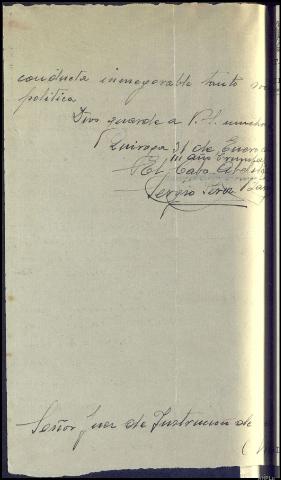 conducta inmejorable tanto
politica
Dios guarde a V.I. muchos
Quiroga 31 de Enero
III año Triunfal
El Cabo
Sergio
Señor Juez de Instrucción de